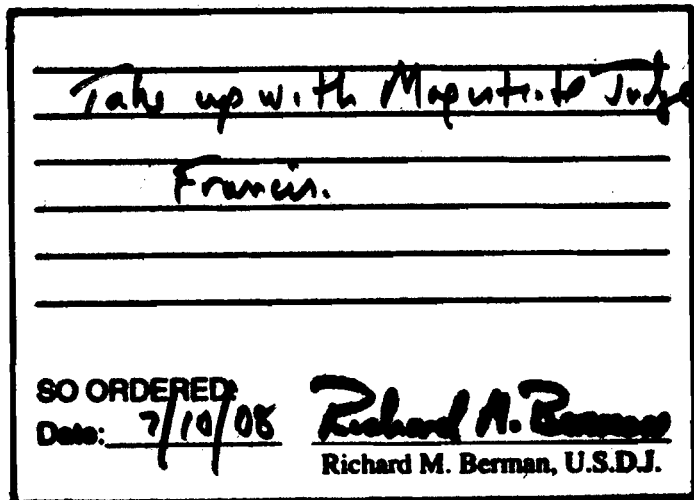 Take up with Magistrate Judge
Francis.
SO ORDERED:
Date: 7/10/08 Richard M. Berman
Richard M. Berman, U.S.D.J.